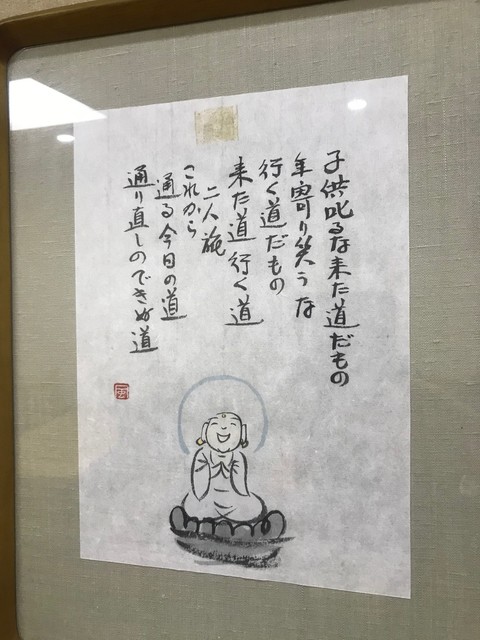 子供叱るな来た道だもの
年寄り笑うな
行く道だもの
来た道行く道
二人旅
これから
通る今日の道
通り直しのできぬ道